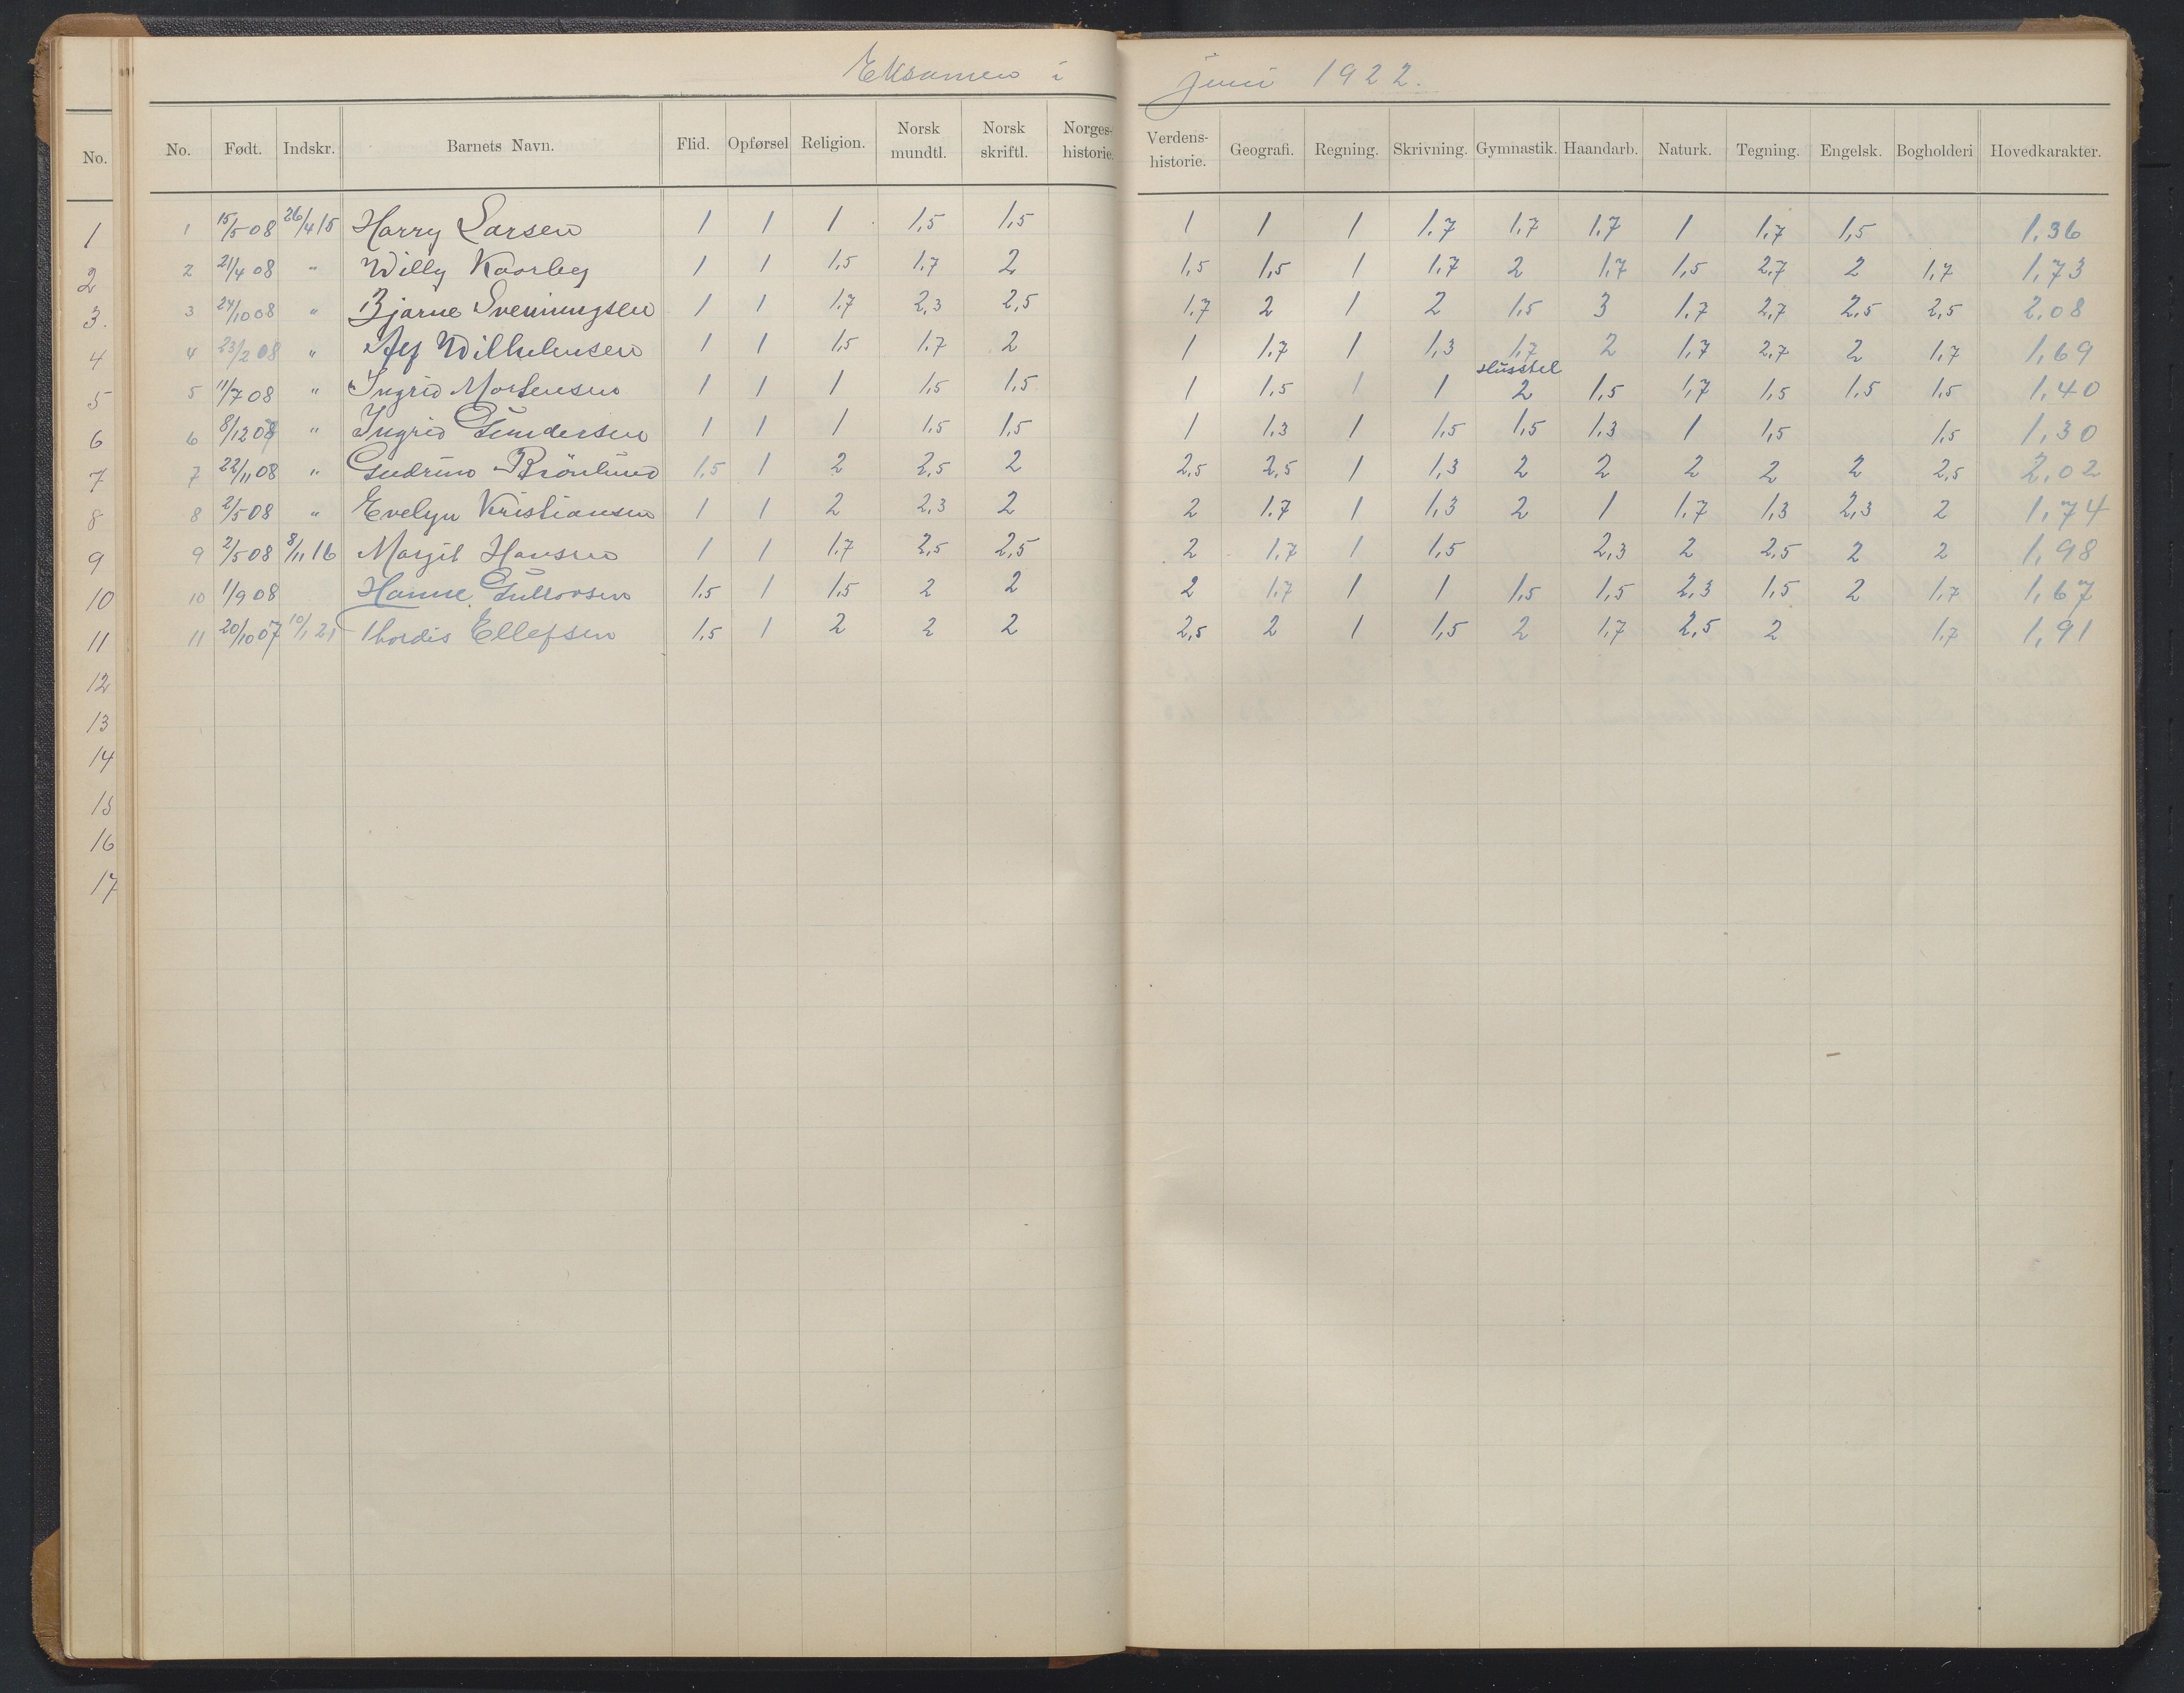 Eksamen i juni 1922.
No. No. Født. Indskr. Barnets Navn. Flid. Opførsel Religion. Norsk mundtl. Norsk skriftl. Norges-historie. Verdens-historie. Geografi. Regning. Skrivning. Gymnastik. Haandarb. Naturk. Tegning. Engelsk. Bogholderi Hovedkarakter.
1 1 15/5 08 26/4 15 Harry Larsen 1 1 1 1,5 1,5 1 1 1 1.7 1.7 1.7 1 1.7 1,5 1.36
2 2 21/4 08 " Willy Kaarbøy 1 1 1,5 1.7 2 1,5 1,5 1 1.7 2 1.7 1,5 2,7 2 1,7 1,73
3. 3 24/10 08 " Bjarne Sveinungsen 1 1 1.7 2,3 2,5 1.7 2 1 2 1,5 3 1.7 2,7 2,5 2,5 2.08
4 4 23/2 08 " Alf Wilhelmsen 1 1 1,5 1.7 2 1 1.7 1 1,3 1.7 2 1,7 2,7 2 1,7 1,69
Husstel
5 5 11/7 08 " Ingrid Mortensen 1 1 1 1,5 1,5 1 1,5 1 1 2 1,5 1,7 1,5 1,5 1,5 1,40
6 6 8/12 08 " Ingrid Gundersen 1 1 1 1.5 1,5 1 1.3 1 1,5 1,5 1.3 1 1,5 1,5 1,30
7 7 22/11 08 " Gudrun Brönlund 1,5 1 2 2,5 2 2,5 2,5 1 1,3 2 2 2 2 2 2,5 2,02
8 8 2/5 08 " Evelyn Kristiansen 1 1 2 2,3 2 2 1.7 1 1,3 2 1 1.7 1,3 2,3 2 1,74
9 9 2/5 08 8/11 16 Margit Hansen 1 1 1.7 2,5 2,5 2 1,7 1 1,5 2,3 2 2,5 2 2 1,98
10 10 1/9 08 Hanne Gullovsen 1,5 1 1,5 2 2 2 1,7 1 1 1,5 1,5 2,3 1,5 2 1,7 1,67
11 11 20/10 07 10/1 21 Thordis Ellefsen 1,5 1 2 2 2 2,5 2 1 1,5 2 1.7 2,5 2 1.7 1,91
12
13
14
15
16
17